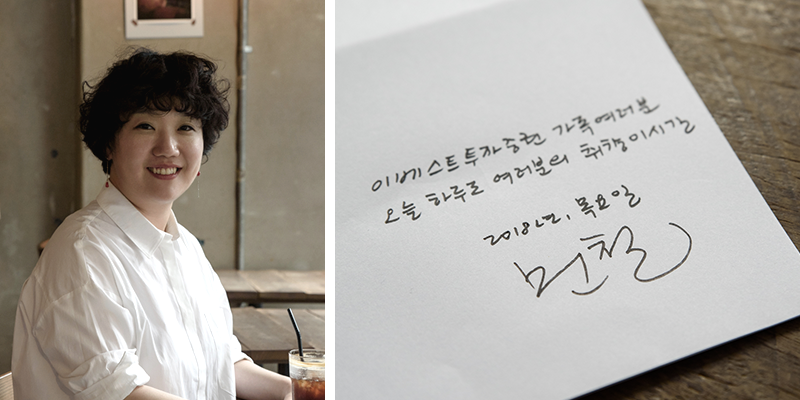 이베스트투자증권 가족여러분
오늘 하루도 여러분의 취향이시길
2018년, 목요일